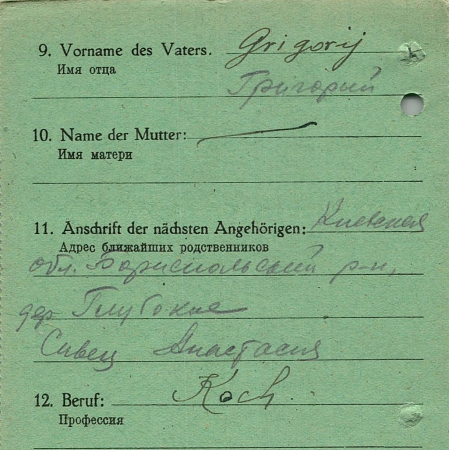 9. Vorname des Vaters. Grigorij
Имя отца
Григорий
10. Name der Mutter: —
Имя матери
11. Anschrift der nächsten Angehörigen: Киевская
Адрес ближайших родственников
обл. Бориспольский р-н,
дер Глубокие
Сивец Анастасия
12. Beruf: Koch.
Профессия